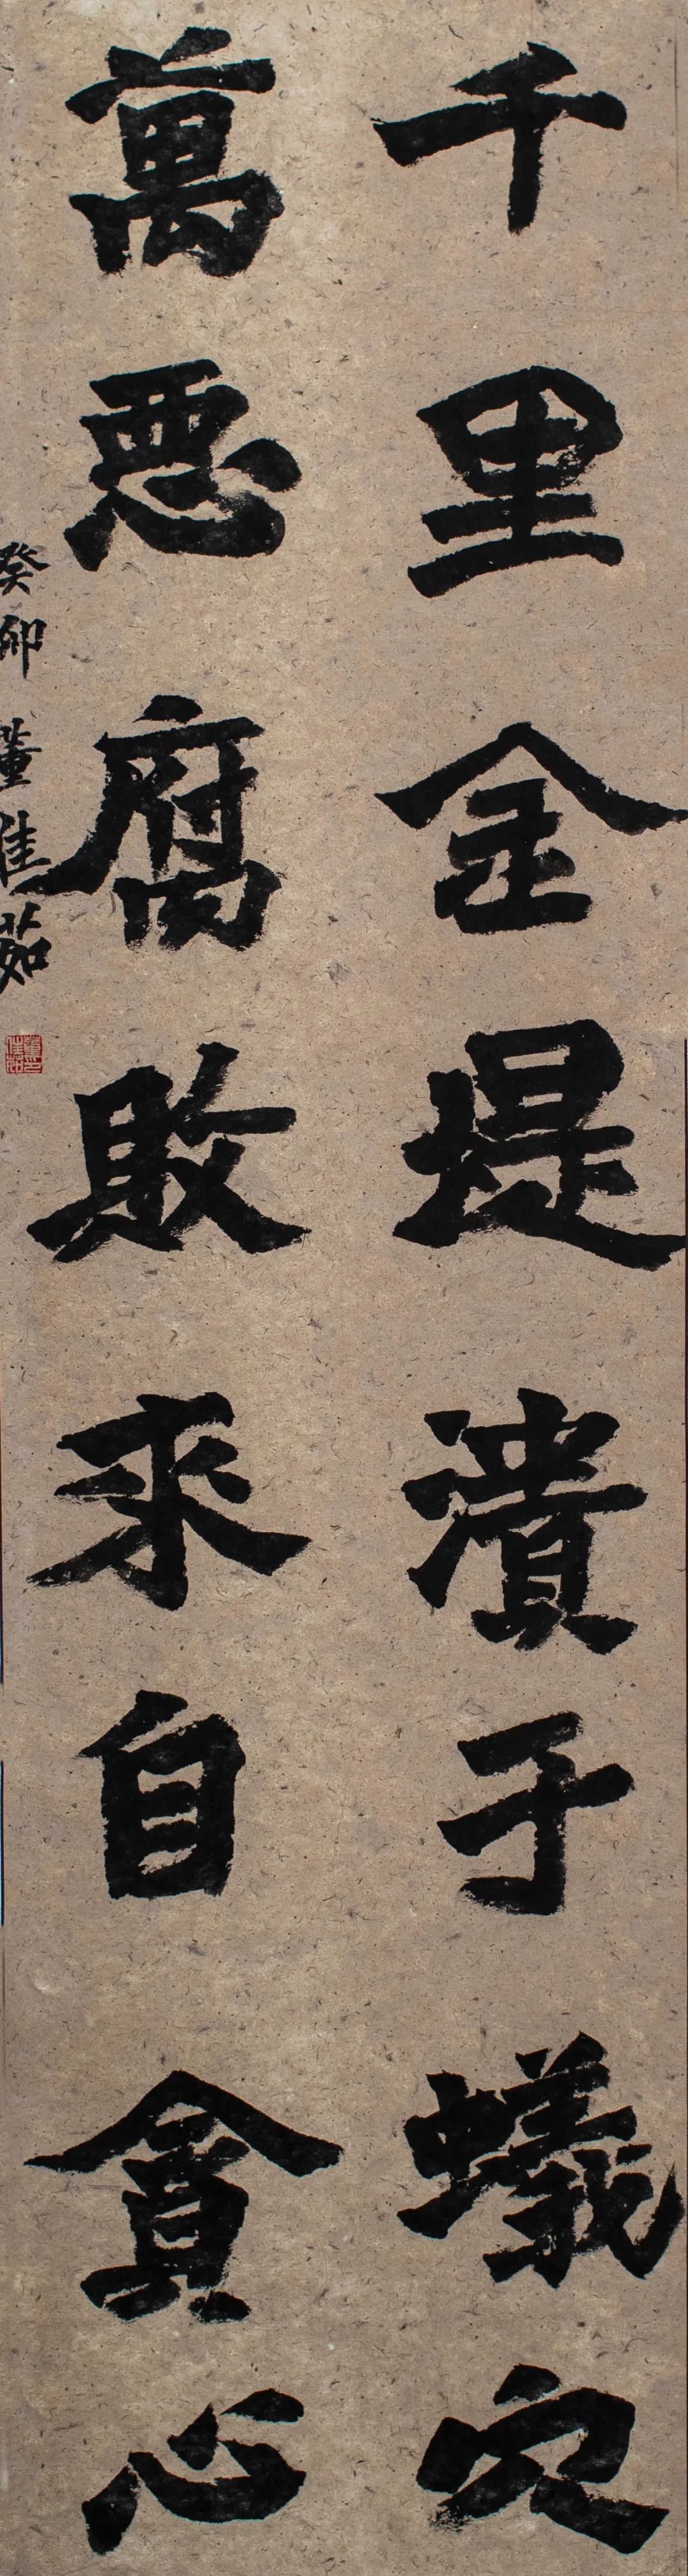 千里金堤潰于蟻穴
萬惡腐敗来自貪心
癸卯 董佳茹